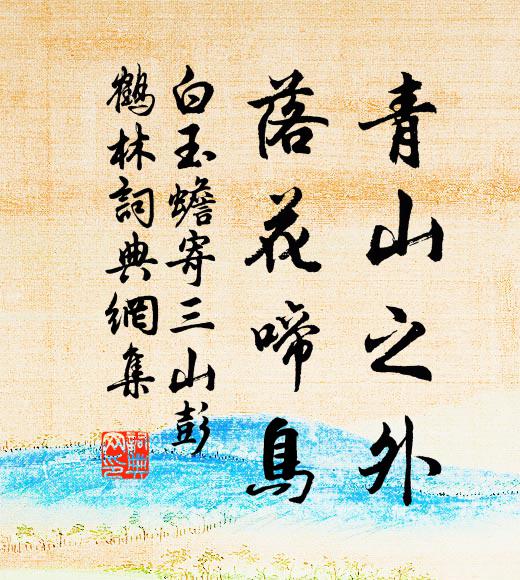 青山之外
落花啼鳥
白玉蟾寄三山彭
鶴林詞典網集